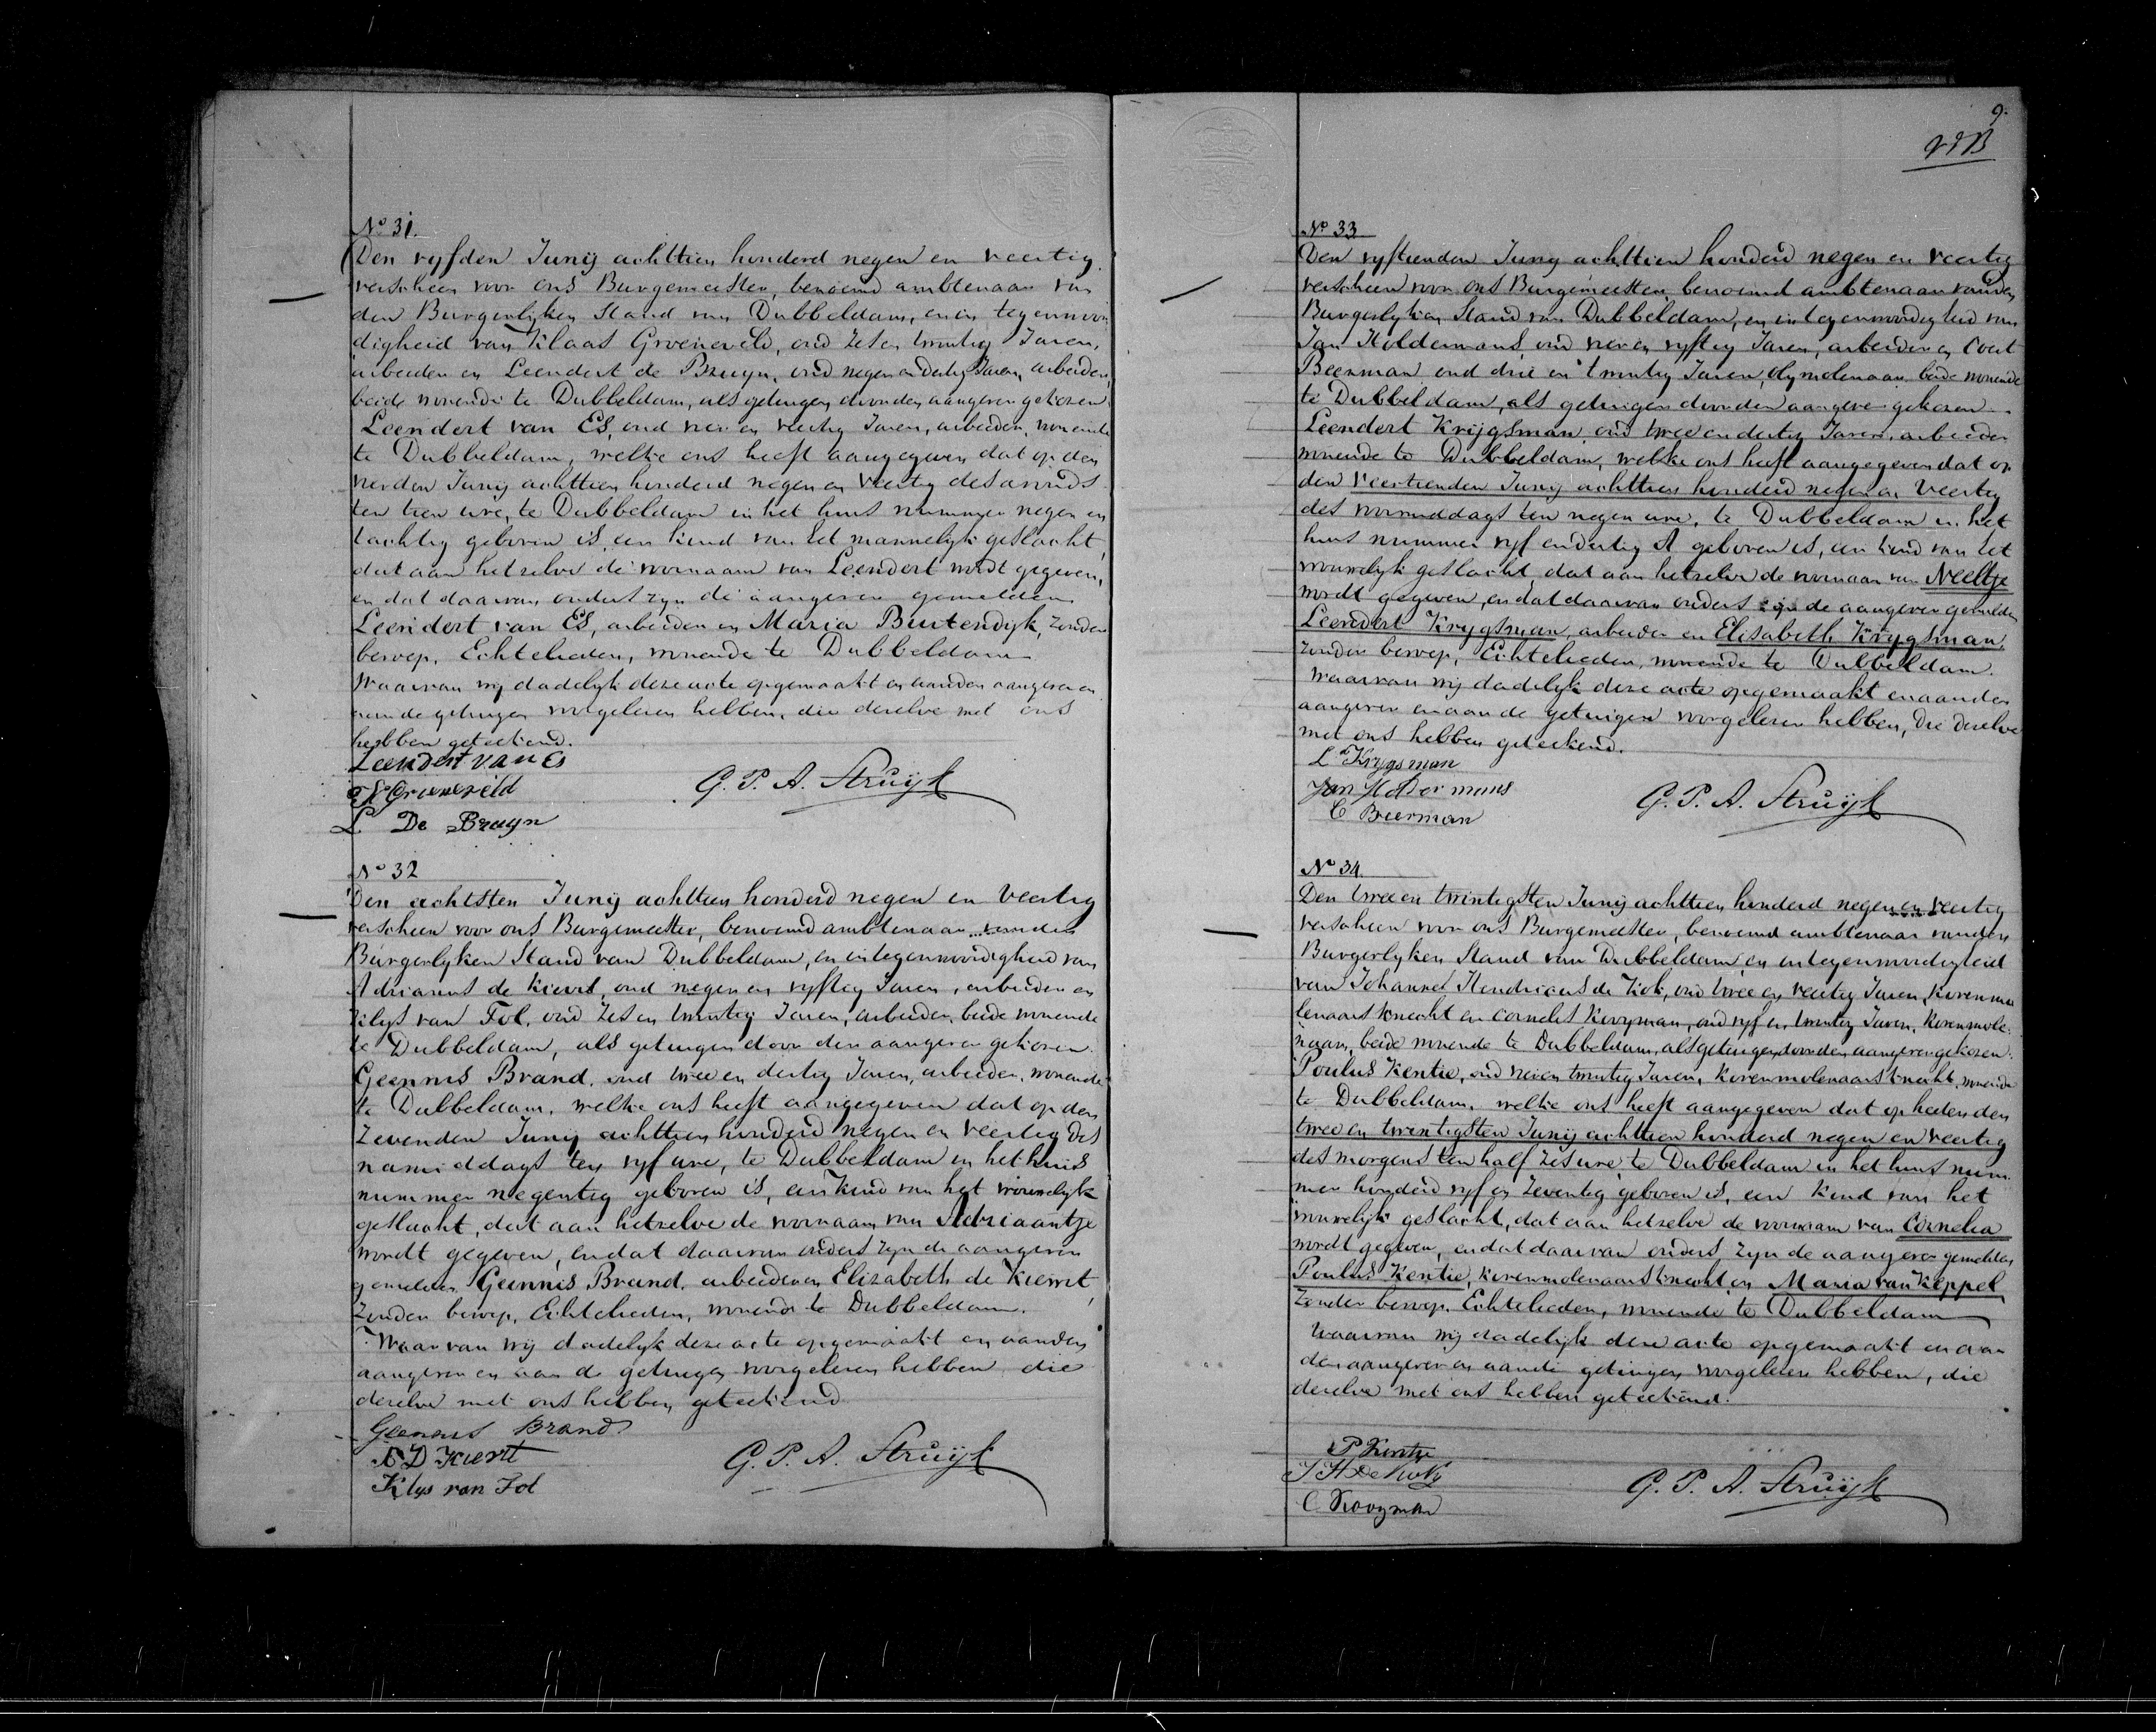 No 31.
Den vyfden Junij achttien honderd negen en veertig
verscheen voor ons Burgemeester, benoemd ambtenaar van
den Burgerlyken Stand van Dubbeldam, en in tegenwoor
digheid van Klaas Groeneveld, oud zes en twintig Jaren,
arbeider en Leendert de Bruyn, oud negen en dertig Jaren, arbeider,
beide wonende te Dubbeldam, als getuigen door den aangever gekozen
Leendert van Es, oud vier en veertig Jaren, arbeider, wonende
te Dubbeldam, welke ons heeft aangegeven dat op den
vierden Junij achttien honderd negen en veertig des avonds
ten tien ure, te Dubbeldam in het huis nummer negen en
tachtig geboren is, een kind van het mannelyk geslacht,
dat aan hetzelve de voornaam van Leendert wordt gegeven,
en dat daarvan ouders zyn de aangever gemelden
Leendert van Es, arbeider en Maria Buitendyk, zonder
beroep, Echtelieden, wonende te Dubbeldam
Waarvan wij dadelyk deze acte opgemaakt en aan den aangever en
aan de getuigen voorgelezen hebben, die dezelve met ons
hebben geteekend.
Leendert van Es
K Groeneveld
G. P. A. Struijk
L De Bruyn
No 32
Den achtsten Junij achttien honderd negen en veertig
verscheen voor ons Burgemeester, benoemd ambtenaar van den
Burgerlyken Stand van Dubbeldam, en in tegenwoordigheid van
Adrianus de Kievit, oud negen en vyftig Jaren, arbeider en
Klys van Tol, oud zes en twintig Jaren, arbeider, beide wonende
te Dubbeldam, als getuigen door den aangever gekozen.
Geennis Brand, oud twee en dertig Jaren, arbeider, wonende
te Dubbeldam, welke ons heeft aangegeven dat op den
Zevenden Junij achttien honderd negen en veertig des
namiddags ten vyf ure, te Dubbeldam in het huis
nummer negentig geboren is, een kind van het vrouwelyk
geslacht, dat aan hetzelve de voornaam van Adriaantje
wordt gegeven, en dat daarvan ouders zyn de aangever
gemelden Geennis Brand, arbeider en Elizabeth de Kievit,
zonder beroep, Echtelieden, wonende te Dubbeldam.
Waarvan wij dadelyk deze acte opgemaakt en aan den
aangever en aan de getuigen voorgelezen hebben die
dezelve met ons hebben geteekend
Geennis Brand
A D Kievit
G. P. A. Struijk
Klys van Tol
9.
No 33
Den vyftienden Junij achttien honderd negen en veertig
verscheen voor ons Burgemeester, benoemd ambtenaar van den
Burgerlyken Stand van Dubbeldam, en in tegenwoordigheid van
Jan Holdermans, oud vier en vyftig Jaren, arbeider en Coert
Beerman oud drie en twintig Jaren, olymolenaar beide wonende
te Dubbeldam, als getuigen door den aangever gekozen
Leendert Krijgsman, oud twee en dertig Jaren, arbeider
wonende te Dubbeldam, welke ons heeft aangegeven dat op
den veertienden Junij achttien honderd negen en veertig
des voormiddags ten negen ure, te Dubbeldam in het
huis nummer vyf en dertig A geboren is, een kind van het
vrouwelyk geslacht, dat aan hetzelve de voornaam van Neeltje
wordt gegeven, en dat daarvan ouders zijn de aangever gemelden
Leendert Krygsman, arbeider en Elisabeth Krygsman,
zonder beroep, Echtelieden, wonende te Dubbeldam.
Waarvan wij dadelyk deze acte opgemaakt en aan den
aangever en aan de getuigen voorgelezen hebben, die dezelve
met ons hebben geteekend.
L Krygsman
Jan Holdermans
G. P. A. Struijk
C Beerman
No 34
Den twee en twintigsten Junij achttien honderd negen en veertig
verscheen voor ons Burgemeester, benoemd ambtenaar van den
Burgerlyken Stand van Dubbeldam, en in tegenwoordigheid
van Johannes Hendricus de Kok, oud twee en veertig Jaren, korenmo
lenaars knecht en Cornelis Kooyman, oud vyf en twintig Jaren, korenmole
naar, beide wonende te Dubbeldam, als getuigen door den aangever gekozen.
Poulus Kentie, oud vier en twintig Jaren, korenmolenaars knecht, wonende
te Dubbeldam, welke ons heeft aangegeven dat op heden den
twee en twintigsten Junij achttien honderd negen en veertig
des morgens ten half zes ure te Dubbeldam in het huis num
mer honderd vyf en zeventig geboren is, een kind van het
vrouwelyk geslacht, dat aan hetzelve de voornaam van Cornelia
wordt gegeven, en dat daarvan ouders zyn de aangever gemelden
Poulus Kentie, korenmolenaars knecht en Maria van Keppel
zonder beroep, Echtelieden, wonende te Dubbeldam
Waarvan wij dadelijk deze acte opgemaakt en aan
den aangever en aan de getuigen voorgelezen hebben, die
dezelve met ons hebben geteekend.
P Kentie
J H De Kok
G. P. A. Struijk
C Kooyman